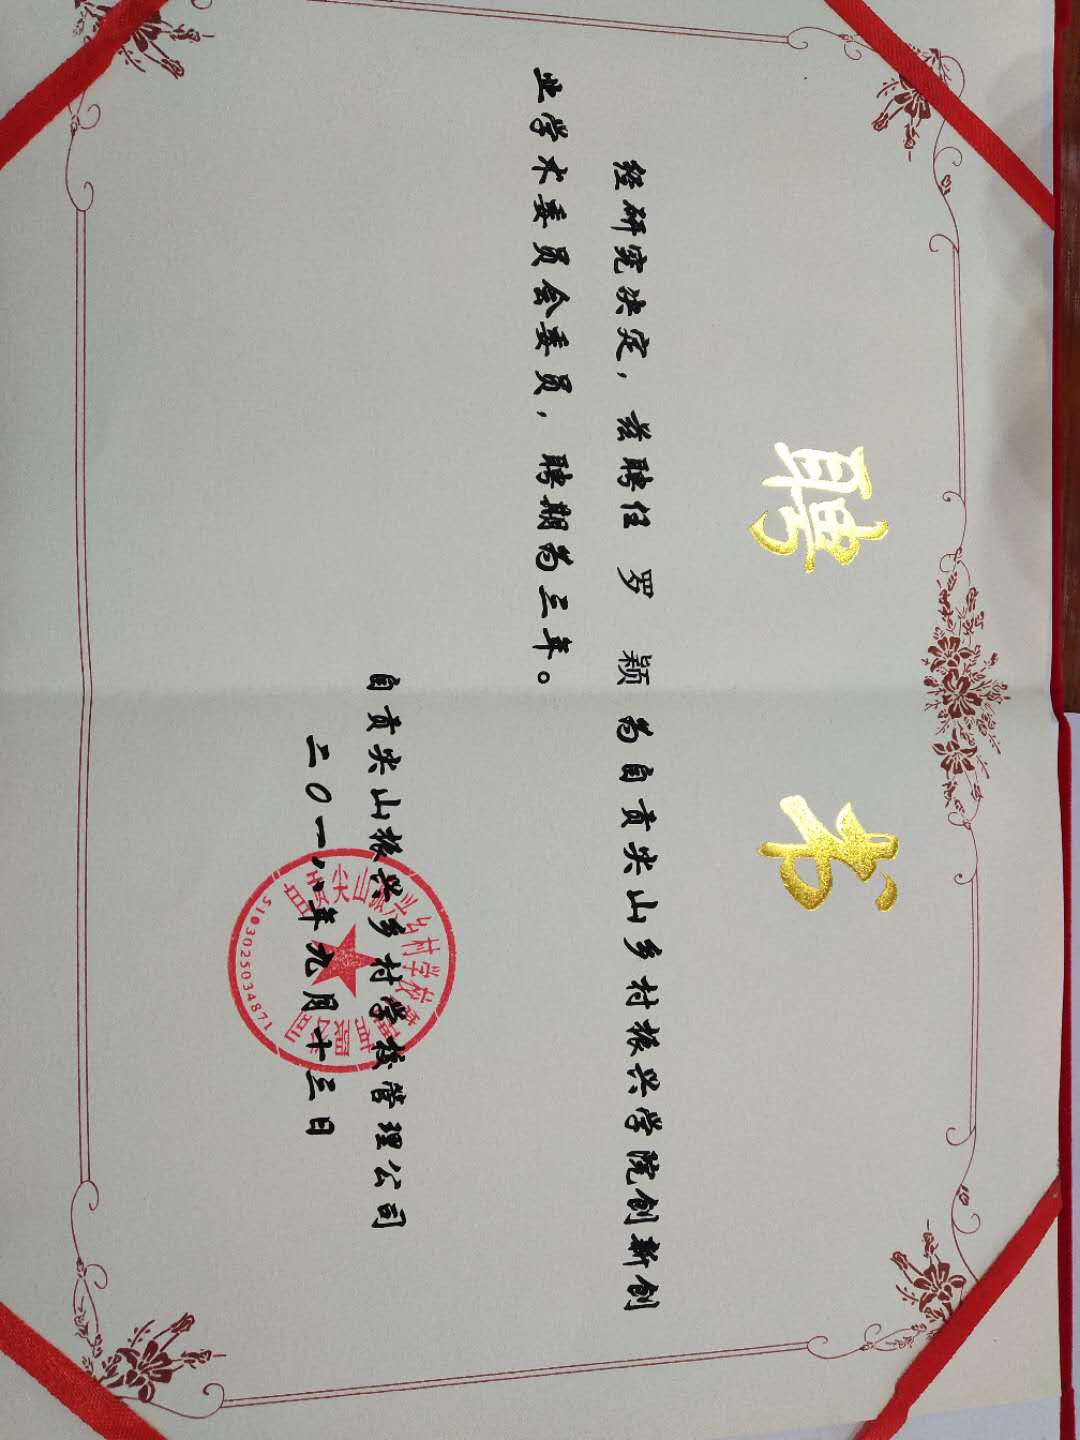 聘书
经研究决定，兹聘任 罗 颖 为自贡尖山乡村振兴学院创新创
业学术委员会委员，聘期为三年。
自贡尖山振兴乡村学校管理公司
二〇一八年九月十三日
5103025034871